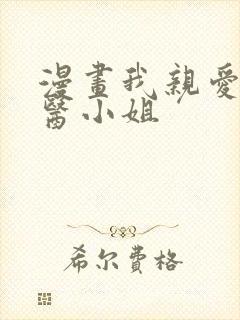 漫畫我親愛
醫小姐
希尔費格